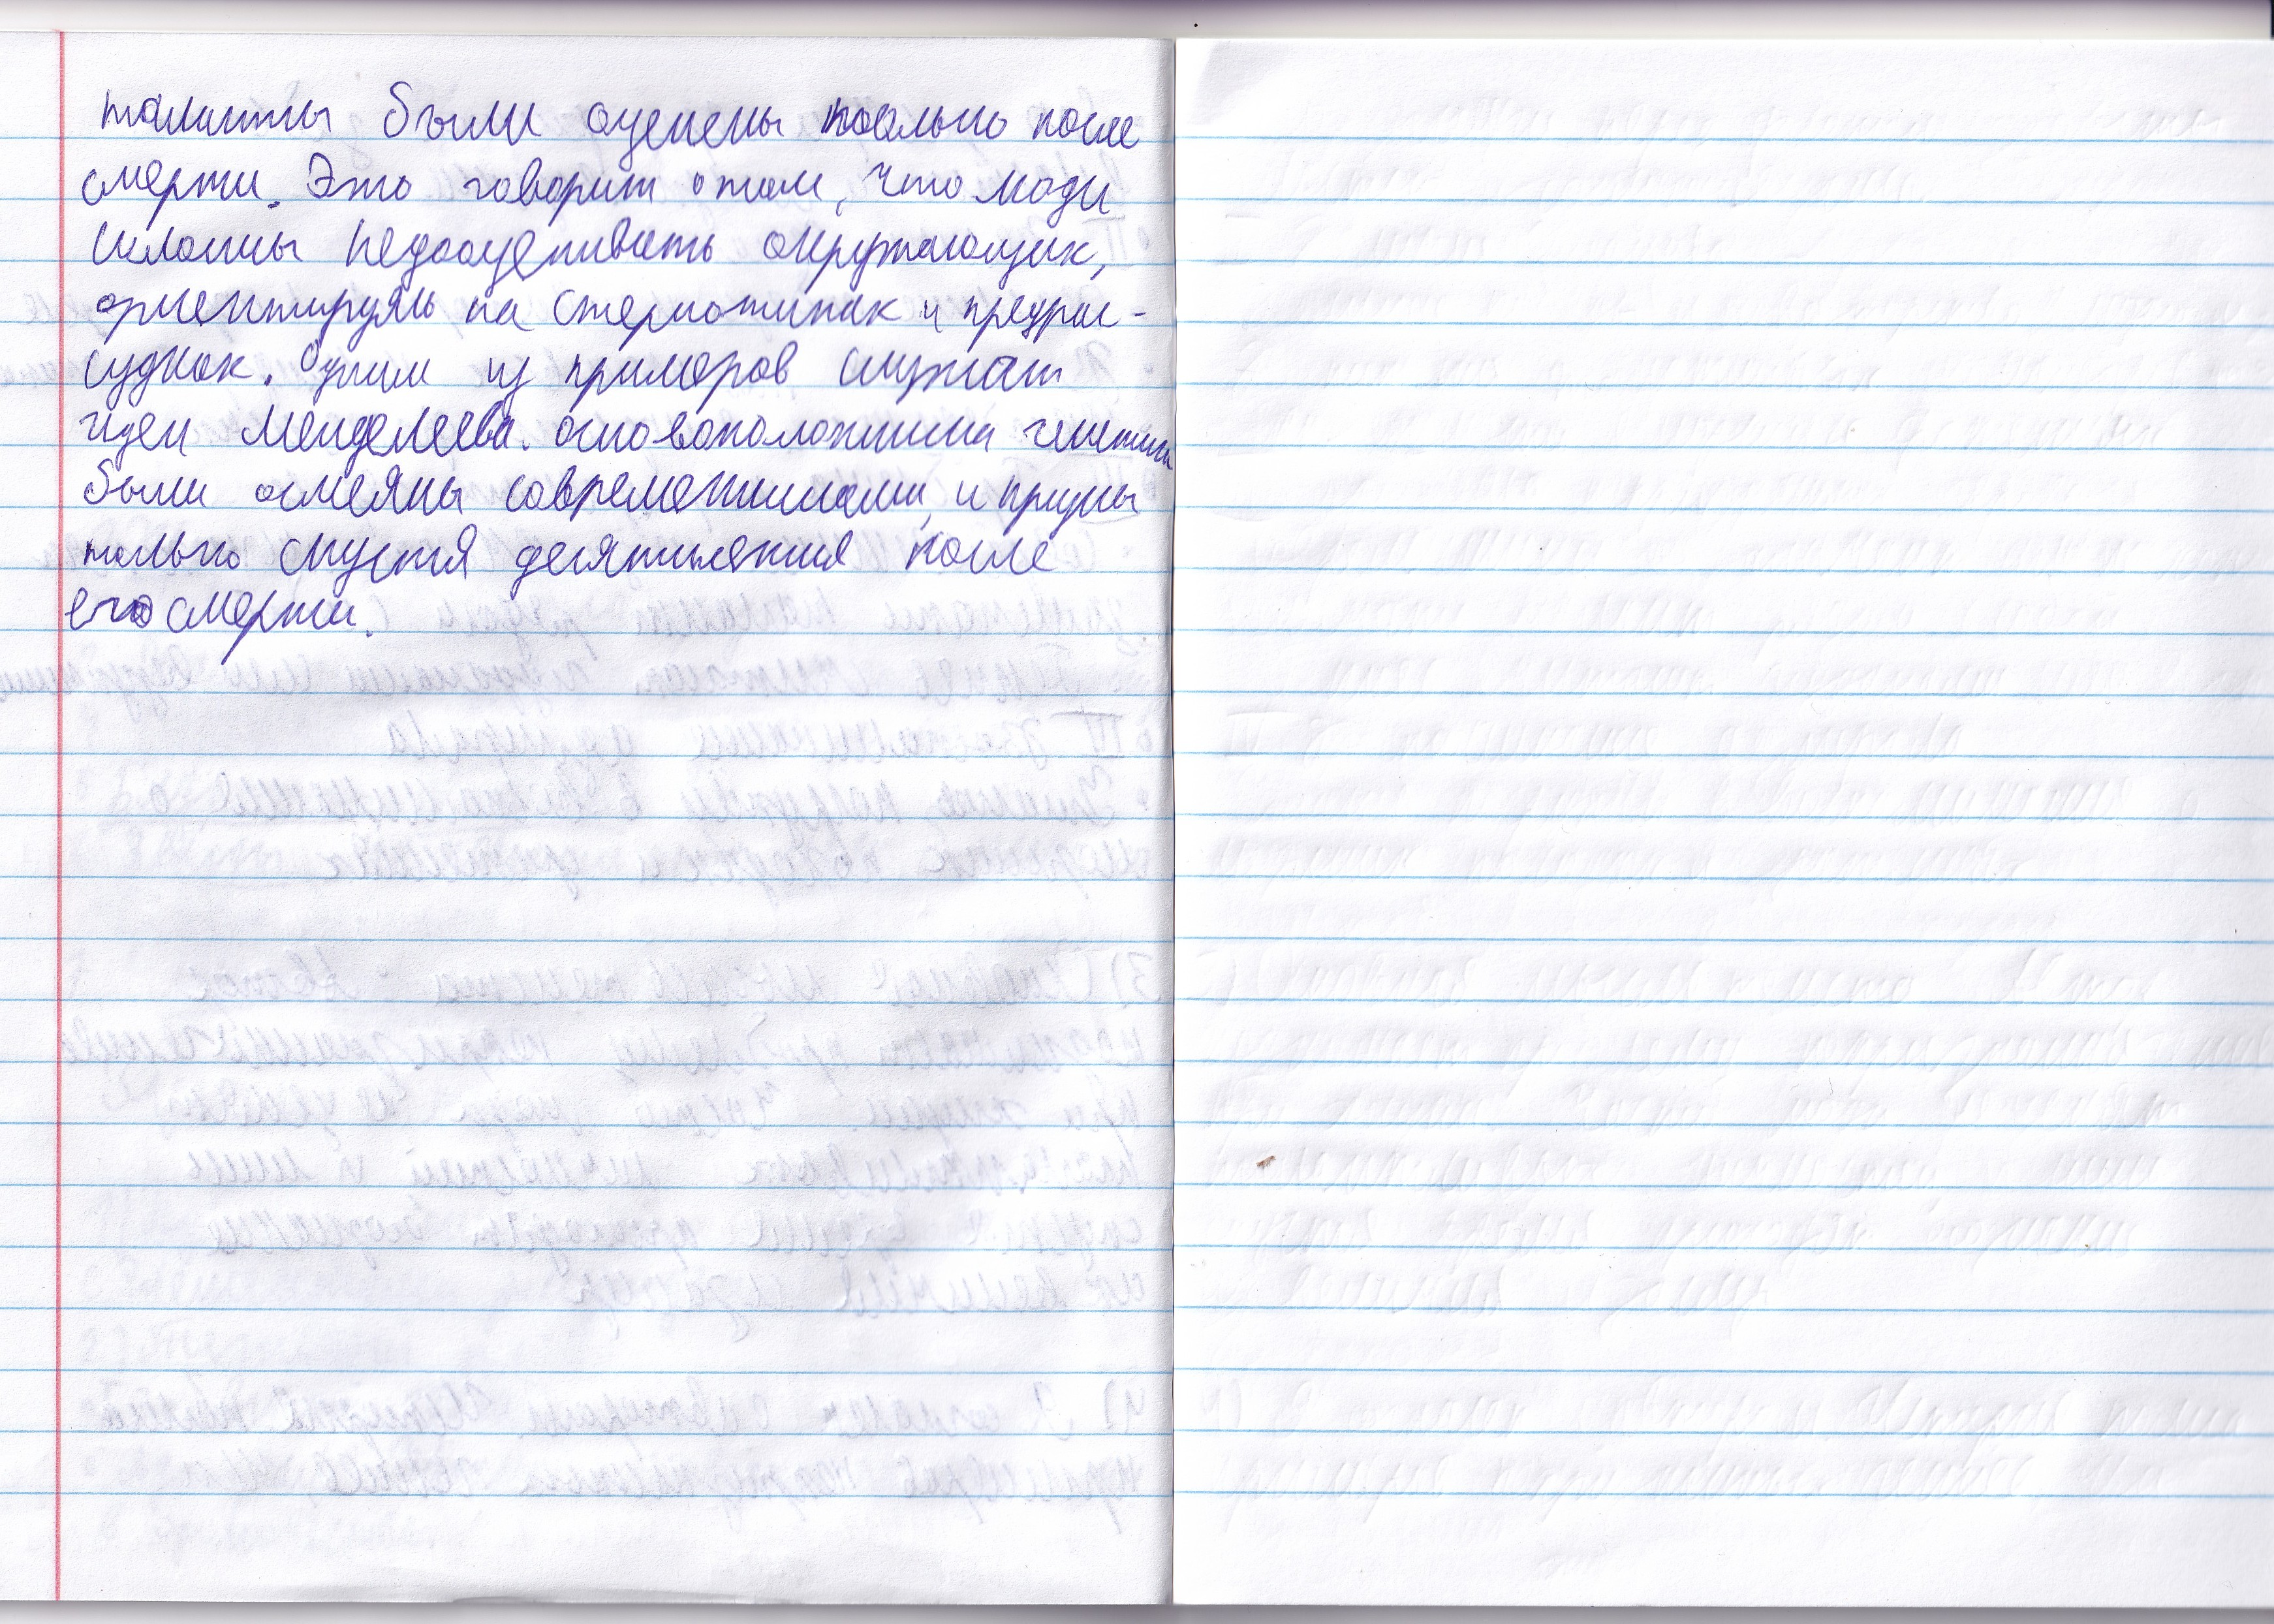 таланты были оценены только после
смерти. Это говорит о том, что люди
склонны недооценивать окружающих,
ориентируясь на стереотипах и предрас-
судках. Одним из примеров служат
идеи Менделеева. основоположника генетики
были осмеяны современниками, и признаны
только спустя десятилетия после
его смерти.